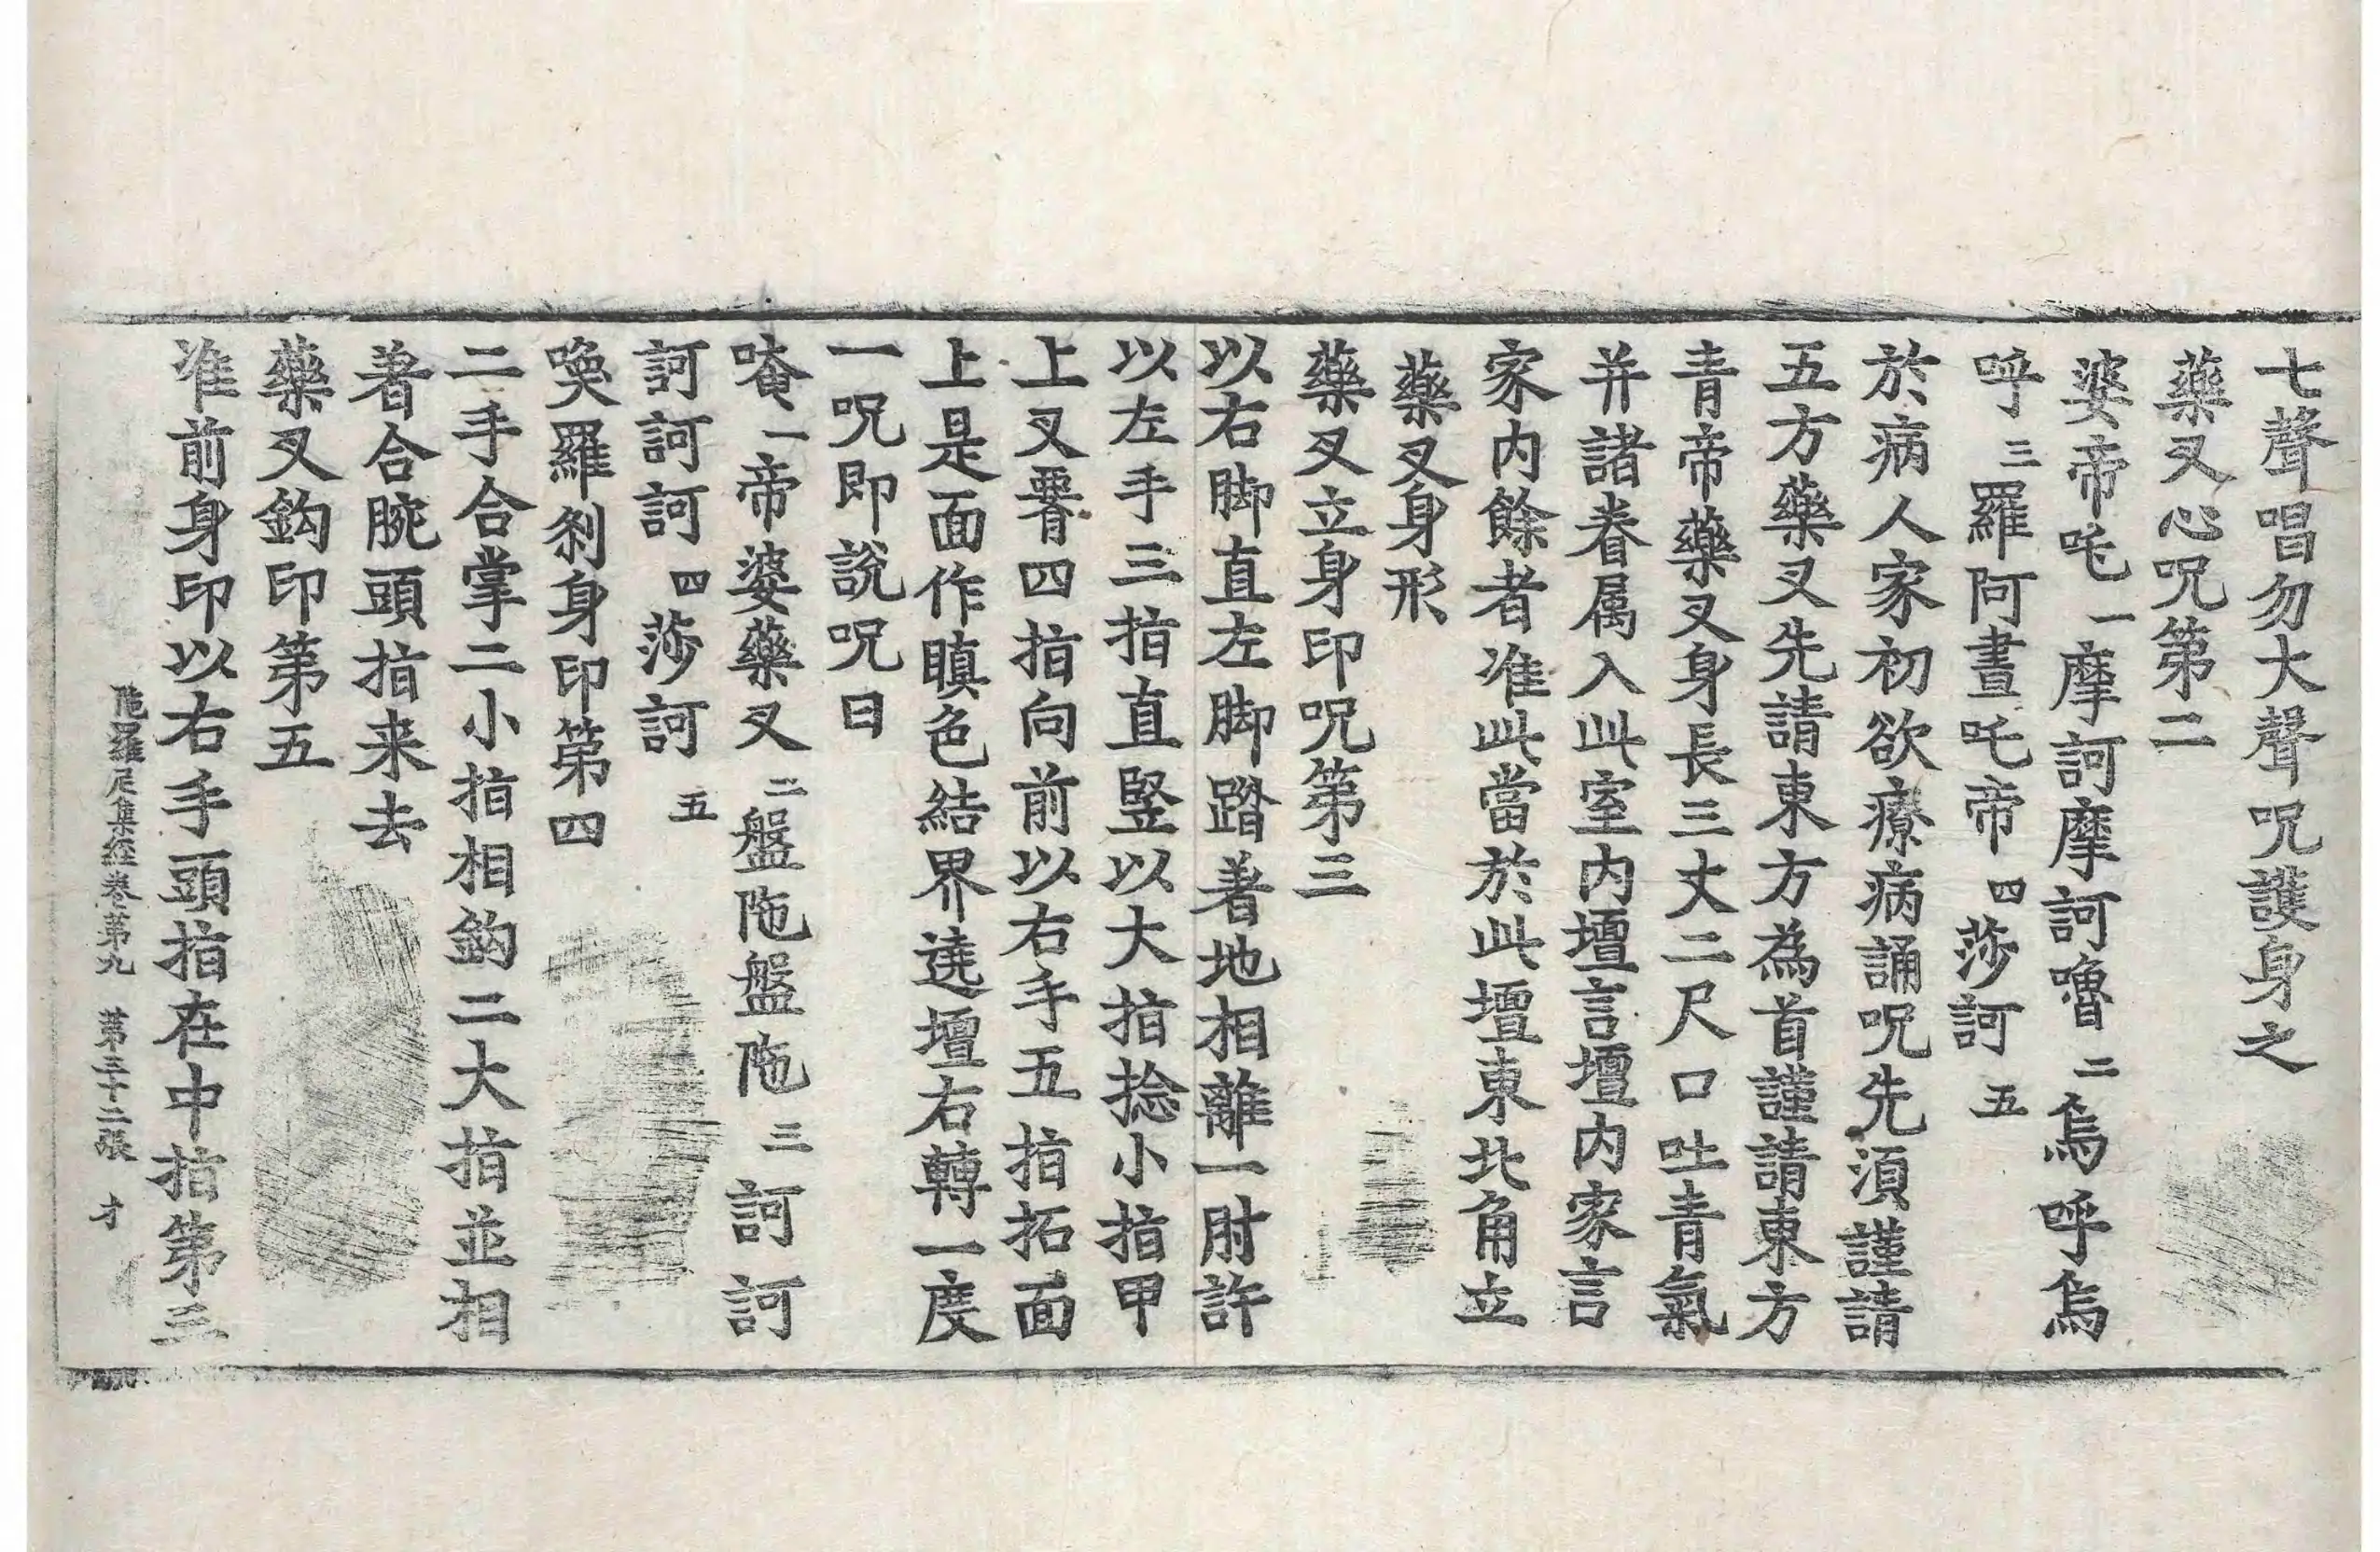 七聲唱勿大聲呪護身之
藥叉心呪第二
婆帝吒一摩訶摩訶嚕二烏呼烏
呼三羅阿晝吒帝四莎訶五
於病人家初欲療病誦呪先須謹請
五方藥叉先請東方為首謹請東方
青帝藥叉身長三丈二尺口吐青氣
并諸眷属入此室内壇言壇内家言
家内餘者准此當於此壇東北角立
藥叉身形
藥叉立身印呪第三
以右脚直左脚踏著地相離一肘許
以左手三指直竪以大指捻小指甲
上叉臀四指向前以右手五指拓面
上是面作瞋色結界遶壇右轉一度
一呪即説呪曰
唵一帝婆藥叉二盤陁盤陁三訶訶
訶訶訶四莎訶五
喚羅刹身印第四
二手合掌二小指相鈎二大指並相
著合腕頭指来去
藥叉鈎印第五
准前身印以右手頭指在中指第三
陁羅尼集經卷第九　第三十二張　才